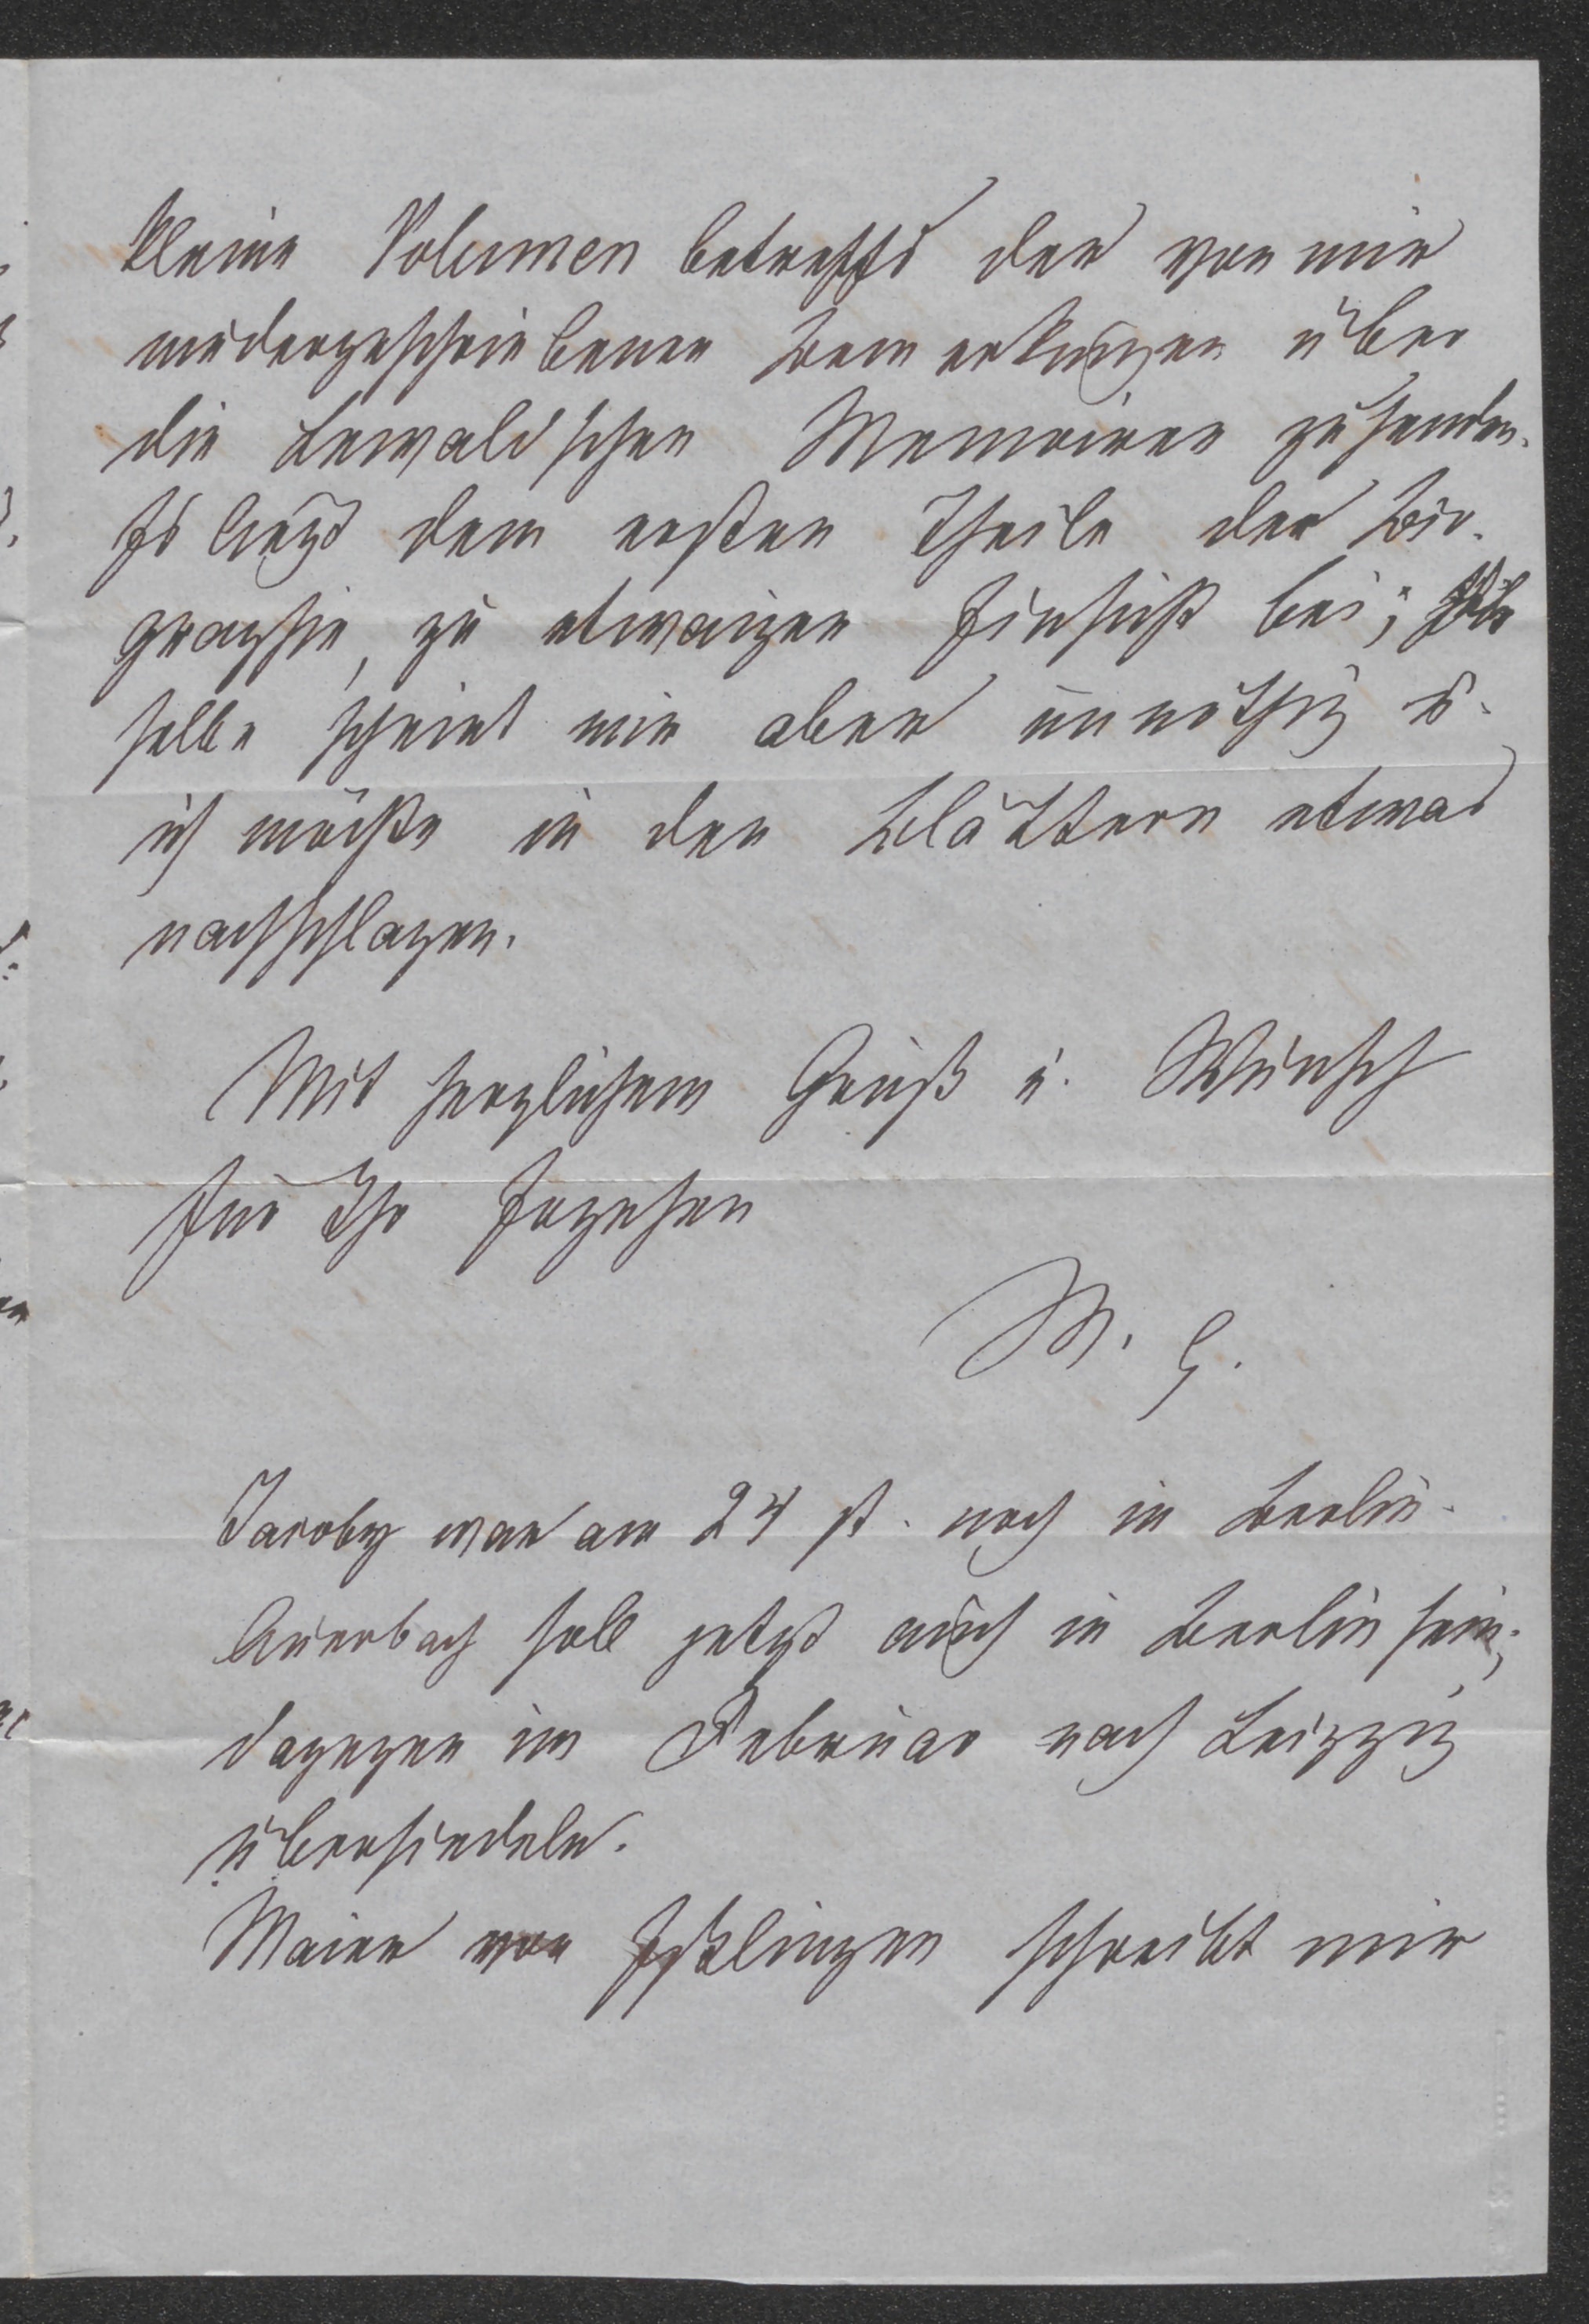 kleine Volumen betreffs der von mir
niedergeschriebenen Bemerkungen über
die Lewald'schen Memoiren zusenden.
Es liegt dem ersten Theile der Bio-
graphie, zu etwaiger Einsicht bei; Die
selbe scheint mir aber unnöthig u.
ich möchte in den Blättern etwas
nachschlagen.
Mit herzlichem Gruß u. Wunsch
für Ihr Ergehen
M. G.
Jacoby war am 24 st. noch in Berlin.
Auerbach soll jetzt auch in Berlin sein;
dagegen im Februar nach Leipzig
übersiedeln.
Maier von Eßlingen schreibt mir